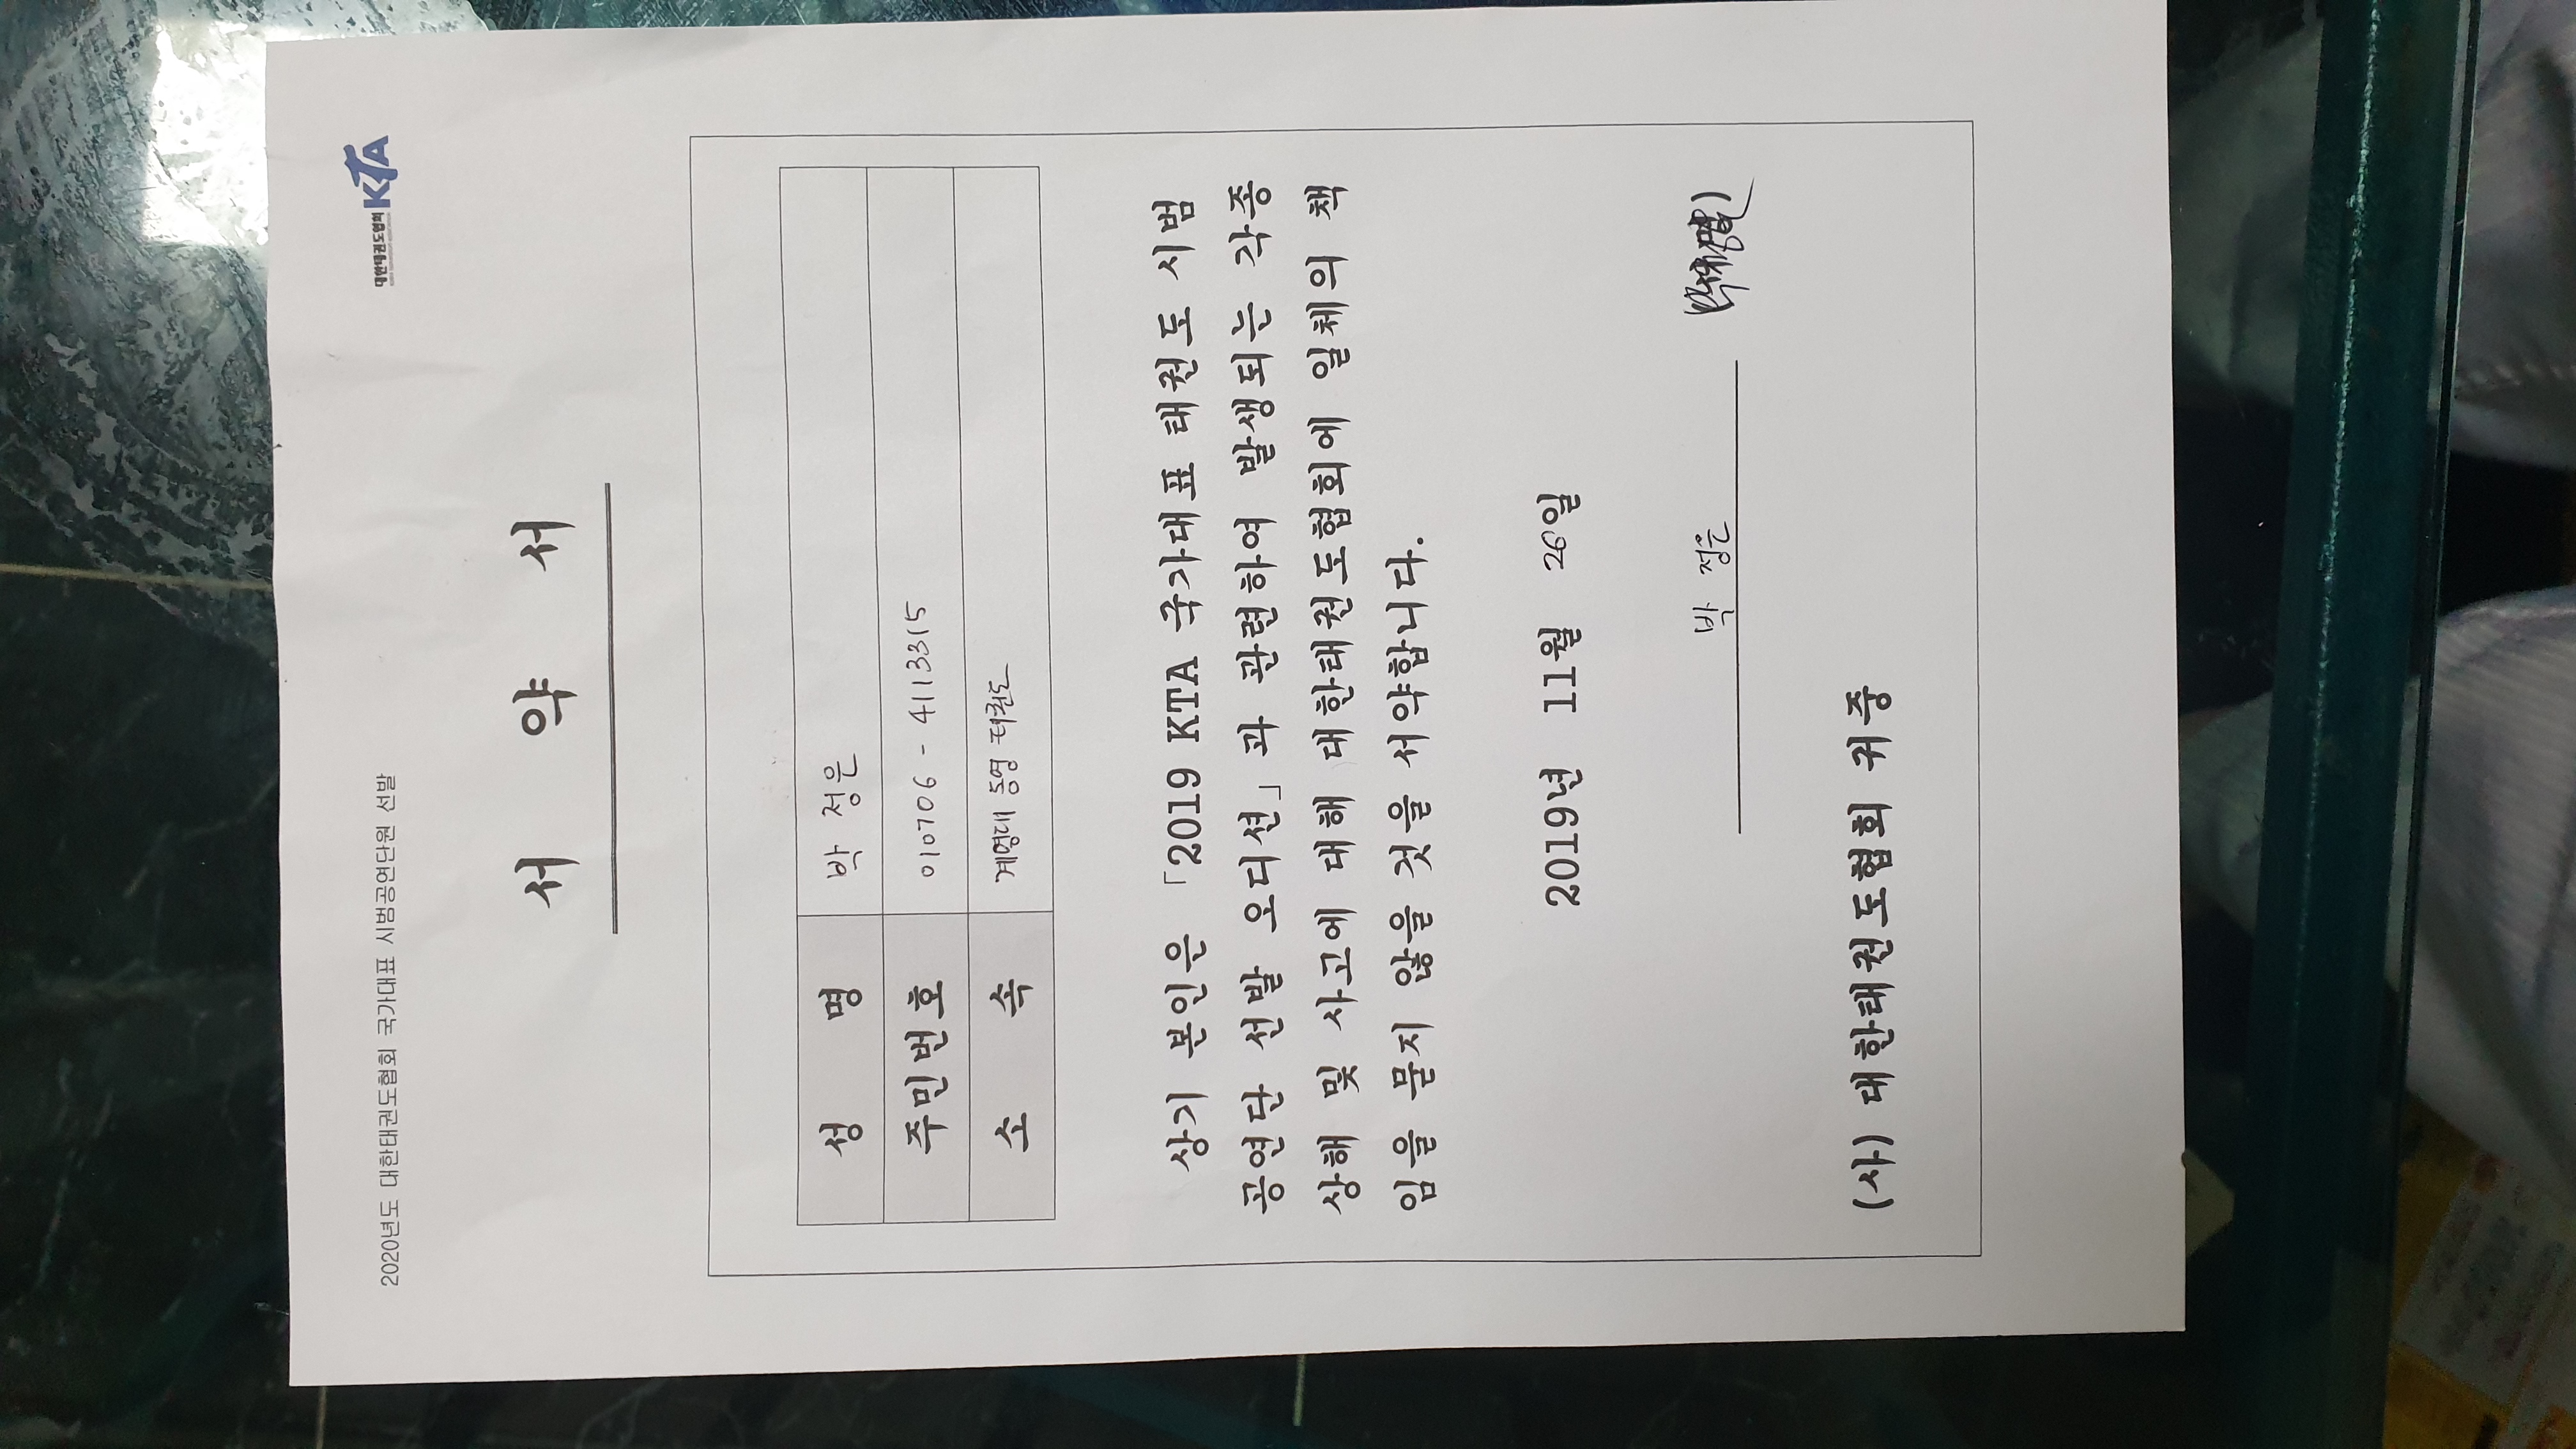 2020년도 대한태권도협회 국가대표 시범공연단원 선발
대한태권도협회 KTA
서 약 서
성 명 박 정은
주민번호 010706 - 4113315
소 속 계명대 동영 태권도
상기 본인은 「2019 KTA 국가대표 태권도 시범
공연단 선발 오디션」과 관련하여 발생되는 각종
상해 및 사고에 대해 대한태권도협회에 일체의 책
임을 묻지 않을 것을 서약합니다.
2019년 11월 26일
박 정은
(사) 대한태권도협회 귀중